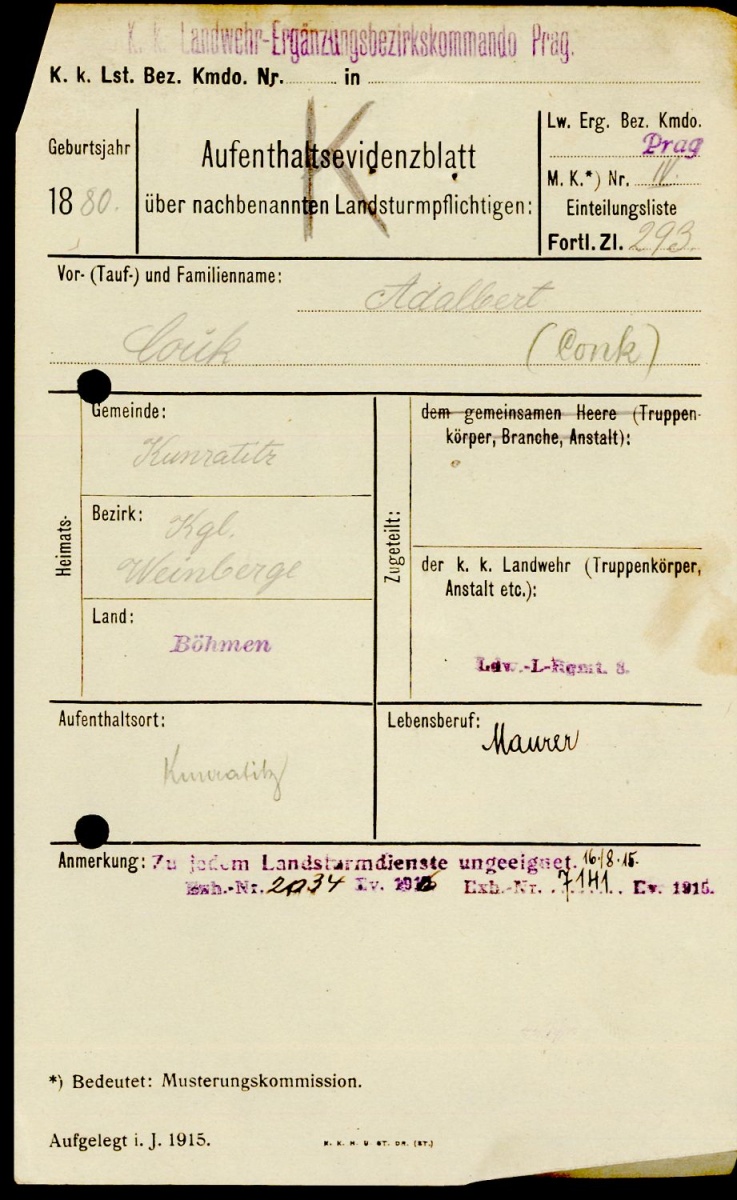 K. k. Landwehr-Ergänzungsbezirkskommando Prag.
K. k. Lst. Bez. Kmdo. Nr. in
Geburtsjahr
1880.
Aufenthaltsevidenzblatt
über nachbenannten Landsturmpflichtigen:
K
Lw. Erg. Bez. Kmdo.
Prag
M. K.*) Nr. IV.
Einteilungsliste
Fortl. Zl. 293
Vor- (Tauf-) und Familienname:
Adalbert
Couk (Conk)
Heimats-
Gemeinde:
Kunratitz
Bezirk:
Kgl.
Weinberge
Land:
Böhmen
Zugeteilt:
dem gemeinsamen Heere (Truppen-
körper, Branche, Anstalt):
der k. k. Landwehr (Truppenkörper,
Anstalt etc.):
Ldw.-I.-Rgmt. 8.
Aufenthaltsort:
Kunratitz
Lebensberuf:
Maurer
Anmerkung: Zu jedem Landsturmdienste ungeeignet. 16/8.15.
Exh.-Nr. 2034 Ev. 1916 Exh.-Nr. 7141 Ev. 1915.
*) Bedeutet: Musterungskommission.
Aufgelegt i. J. 1915.
K. K. H. U ST. DR. (ST.)